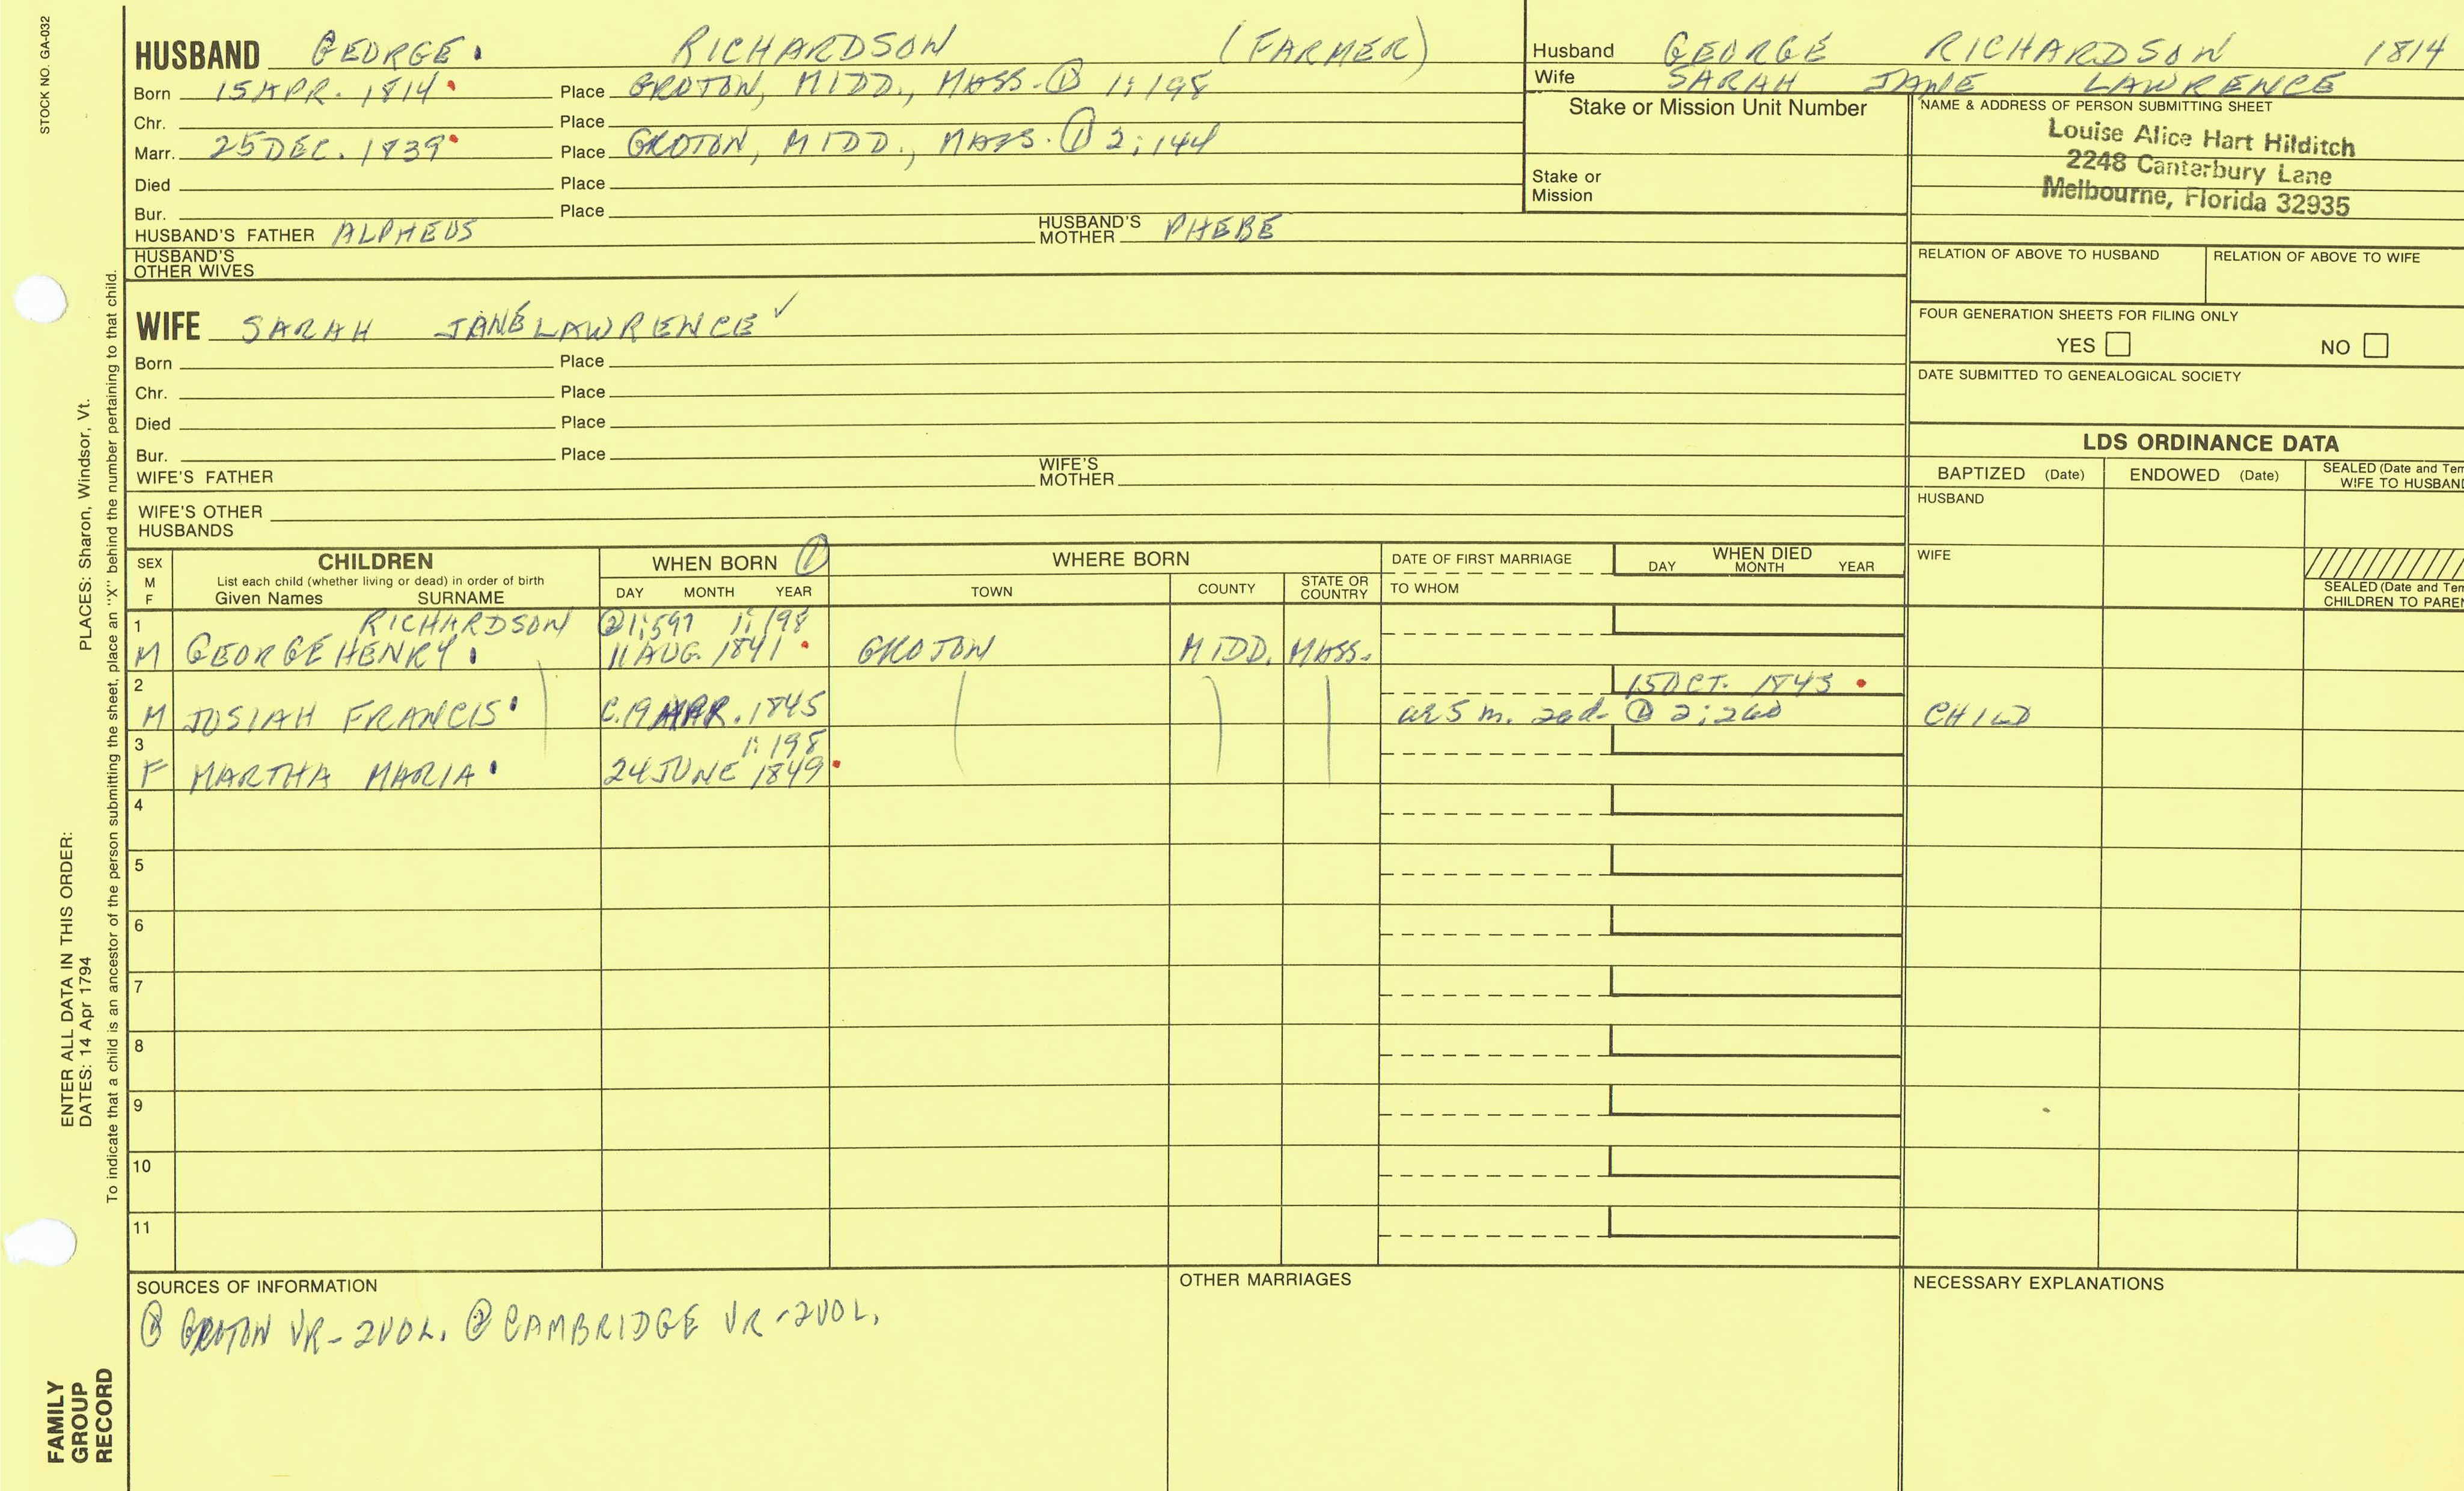 STOCK NO. GA-032
HUSBAND GEORGE. RICHARDSON (FARMER)
Born 15 APR. 1814 Place GROTON, MIDD., MASS. ① 1:198
Chr. Place
Marr. 25 DEC. 1839 Place GROTON, MIDD., MASS. ① 2:144
Died Place
Bur. Place
HUSBAND'S FATHER ALPHEUS HUSBAND'S MOTHER PHEBE
HUSBAND'S OTHER WIVES
Husband GEORGE RICHARDSON 1814
Wife SARAH JANE LAWRENCE
Stake or Mission Unit Number
Stake or
Mission
NAME & ADDRESS OF PERSON SUBMITTING SHEET
Louise Alice Hart Hilditch
2248 Canterbury Lane
Melbourne, Florida 32935
RELATION OF ABOVE TO HUSBAND RELATION OF ABOVE TO WIFE
FOUR GENERATION SHEETS FOR FILING ONLY
YES NO
DATE SUBMITTED TO GENEALOGICAL SOCIETY
WIFE SARAH JANE LAWRENCE ✓
Born Place
Chr. Place
Died Place
Bur. Place
WIFE'S FATHER WIFE'S MOTHER
WIFE'S OTHER HUSBANDS
LDS ORDINANCE DATA
BAPTIZED (Date) ENDOWED (Date) SEALED (Date and Tem
WIFE TO HUSBAND
HUSBAND
WIFE
SEALED (Date and Tem
CHILDREN TO PAREN
SEX M F CHILDREN WHEN BORN ① WHERE BORN DATE OF FIRST MARRIAGE WHEN DIED
List each child (whether living or dead) in order of birth
Given Names SURNAME DAY MONTH YEAR TOWN COUNTY STATE OR COUNTRY TO WHOM DAY MONTH YEAR
1 RICHARDSON ② 1:597 1:198
M GEORGE HENRY. 11 AUG. 1841 GROTON MIDD. MASS.
2 15 OCT. 1845
M JOSIAH FRANCIS C. 19 MAR. 1845 ae 5 m. 26 d. ① 2:260 CHILD
3 1:198
F MARTHA MARIA 24 JUNE 1849
4
5
6
7
8
9
10
11
SOURCES OF INFORMATION
① GROTON VR - 2 VOL. ② CAMBRIDGE VR - 2 VOL.
OTHER MARRIAGES
NECESSARY EXPLANATIONS
ENTER ALL DATA IN THIS ORDER:
DATES: 14 Apr 1794 PLACES: Sharon, Windsor, Vt.
To indicate that a child is an ancestor of the person submitting the sheet, place an "X" behind the number pertaining to that child.
FAMILY
GROUP
RECORD